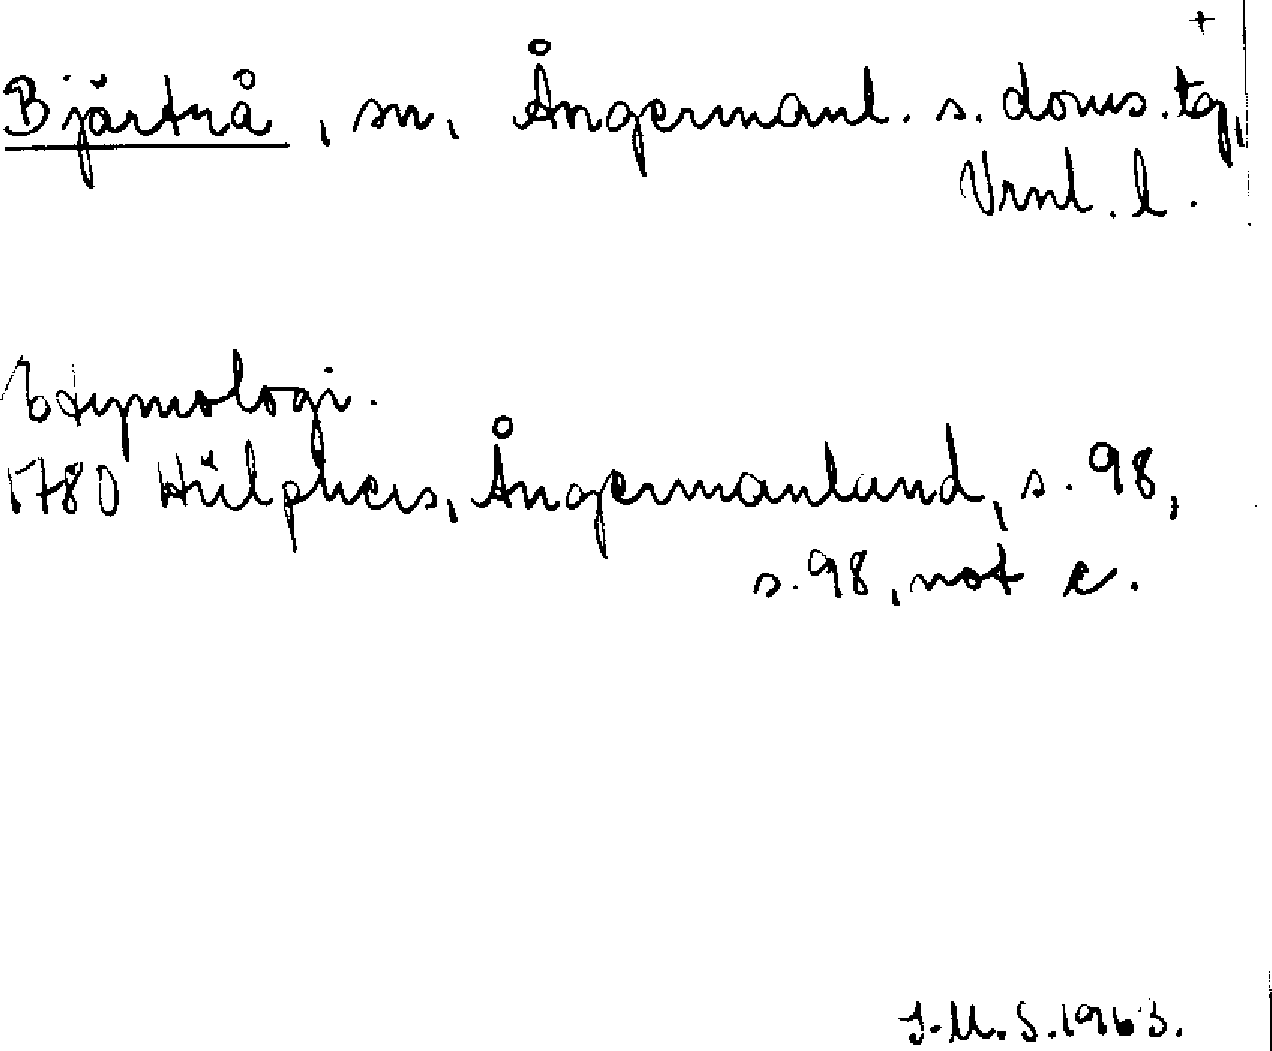 Bjärtrå, sn, Ångermanl. s. doms.tg,
Vrnl. l.
Etymologi.
1780 Hülphers, Ångermanland, s. 98,
s. 98, not c.
J.M.S. 1963.